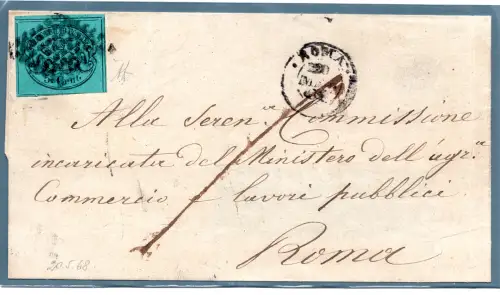 ROMA
Alla Seren.ᵃ Commissione
incaricata del Ministero dell'agr.ᵃ
Commercio e lavori pubblici
Roma
20.5.68